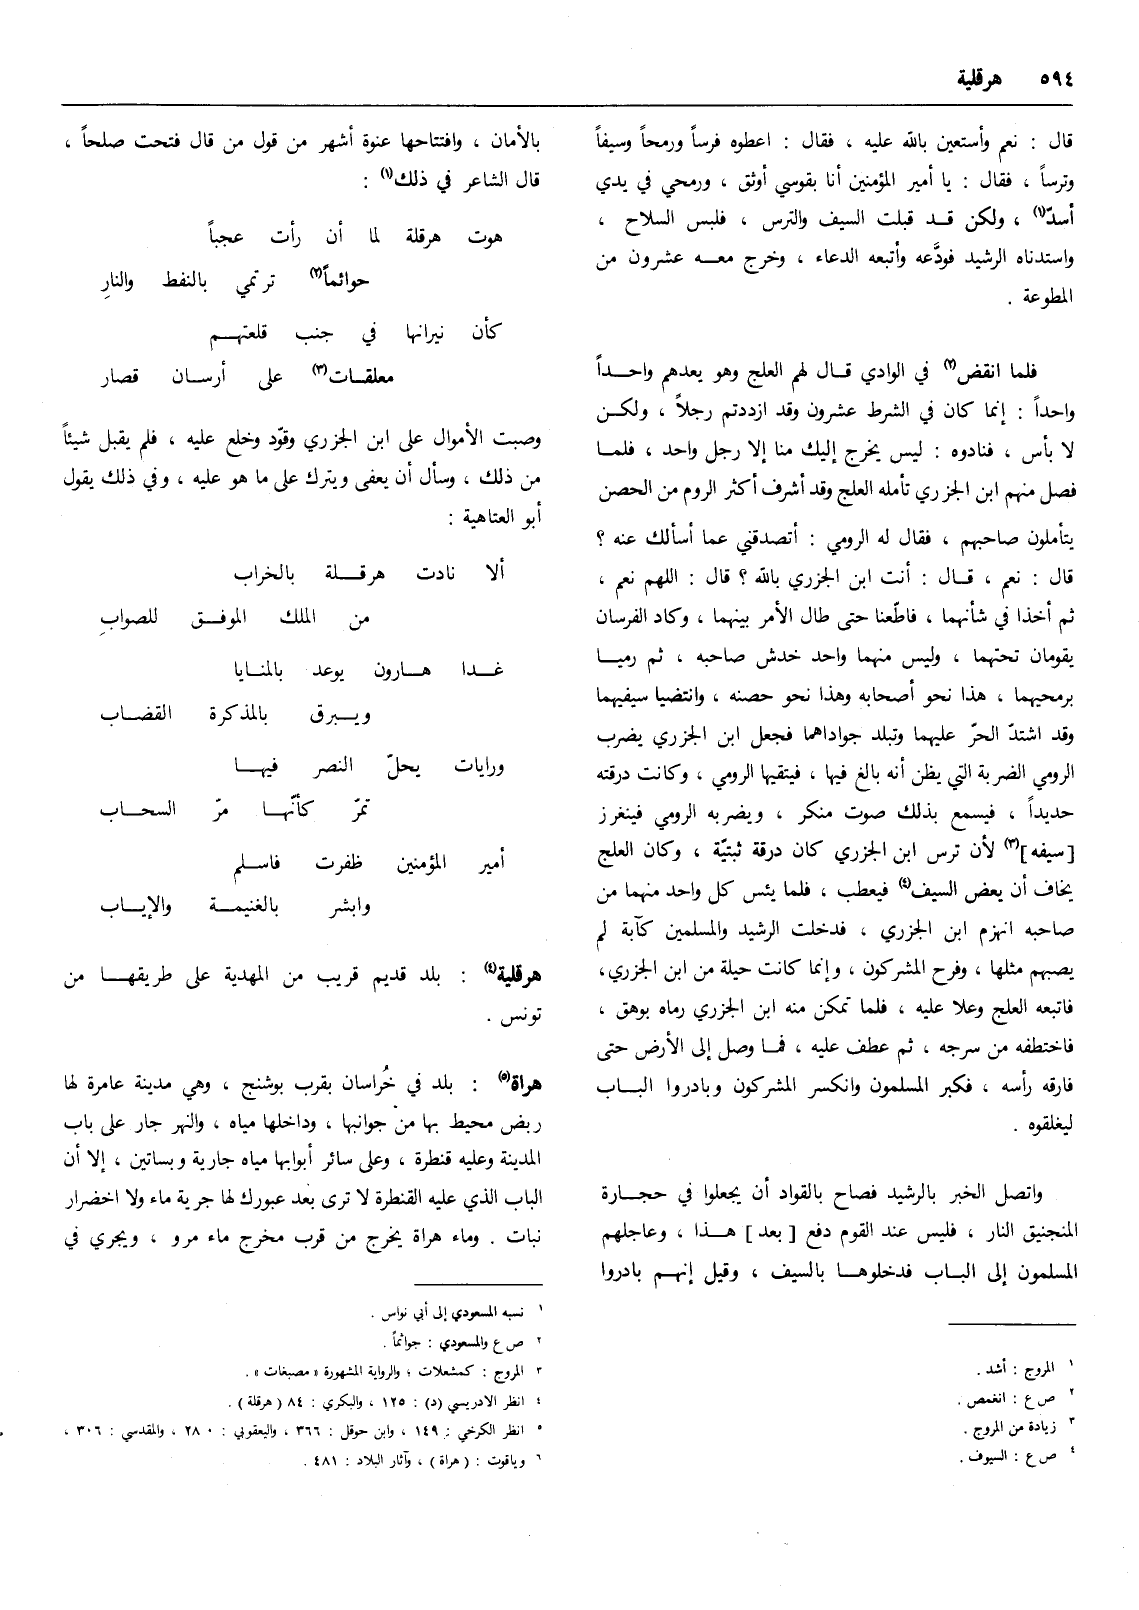 ٥٩٤ هرقلية
قال : نعم وأستعين بالله عليه ، فقال : اعطوه فرساً ورمحاً وسيفاً
وترساً ، فقال : يا أمير المؤمنين أنا بقوسي أوثق ، ورمحي في يدي
أسدّ(١) ، ولكن قد قبلت السيف والترس ، فلبس السلاح ،
واستدناه الرشيد فودَّعه وأتبعه الدعاء ، وخرج معه عشرون من
المطوعة .
فلما انقض(٢) في الوادي قال لهم العلج وهو يعدهم واحداً
واحداً : إنما كان في الشرط عشرون وقد ازددتم رجلاً ، ولكن
لا بأس ، فنادوه : ليس يخرج إليك منا إلا رجل واحد ، فلما
فصل منهم ابن الجزري تأمله العلج وقد أشرف أكثر الروم من الحصن
يتأملون صاحبهم ، فقال له الرومي : أتصدقني عما أسألك عنه ؟
قال : نعم ، قال : أنت ابن الجزري بالله ؟ قال : اللهم نعم ،
ثم أخذا في شأنهما ، فاطّعنا حتى طال الأمر بينهما ، وكاد الفرسان
يقومان تحتهما ، وليس منهما واحد خدش صاحبه ، ثم رميا
برمحيهما ، هذا نحو أصحابه وهذا نحو حصنه ، وانتضيا سيفيهما
وقد اشتدّ الحرّ عليهما وتبلد جواداهما فجعل ابن الجزري يضرب
الرومي الضربة التي يظن أنه بالغ فيها ، فيتقيها الرومي ، وكانت درقته
حديداً ، فيسمع بذلك صوت منكر ، ويضربه الرومي فينغرز
[سيفه](٣) لأن ترس ابن الجزري كان درقة ثبتيّة ، وكان العلج
يخاف أن يعض السيف(٤) فيعطب ، فلما يئس كل واحد منهما من
صاحبه انهزم ابن الجزري ، فدخلت الرشيد والمسلمين كآبة لم
يصبهم مثلها ، وفرح المشركون ، وإنما كانت حيلة من ابن الجزري،
فاتبعه العلج وعلا عليه ، فلما تمكن منه ابن الجزري رماه بوهق ،
فاختطفه من سرجه ، ثم عطف عليه ، فما وصل إلى الأرض حتى
فارقه رأسه ، فكبر المسلمون وانكسر المشركون وبادروا الباب
ليغلقوه .
واتصل الخبر بالرشيد فصاح بالقواد أن يجعلوا في حجارة
المنجنيق النار ، فليس عند القوم دفع [ بعد ] هذا ، وعاجلهم
المسلمون إلى الباب فدخلوها بالسيف ، وقيل إنهم بادروا
١ المروج : أشد .
٢ ص ع : انغمص .
٣ زيادة من المروج .
٤ ص ع : السيوف .
بالأمان ، وافتتاحها عنوة أشهر من قول من قال فتحت صلحاً ،
قال الشاعر في ذلك(١) :
هوت هرقلة لما أن رأت عجباً
حوائماً(٢) ترتمي بالنفط والنارِ
كأن نيرانها في جنب قلعتهم
معلقات(٣) على أرسان قصار
وصبت الأموال على ابن الجزري وقوّد وخلع عليه ، فلم يقبل شيئاً
من ذلك ، وسأل أن يعفى ويترك على ما هو عليه ، وفي ذلك يقول
أبو العتاهية :
ألا نادت هرقلة بالخراب
من الملك الموفق للصوابِ
غدا هارون يوعد بالمنايا
ويبرق بالمذكرة القضاب
ورايات يحلّ النصر فيها
تمرّ كأنّها مرّ السحاب
أمير المؤمنين ظفرت فاسلم
وابشر بالغنيمة والإياب
هرقلية(٤) : بلد قديم قريب من المهدية على طريقها من
تونس .
هراة(٥) : بلد في خُراسان بقرب بوشنج ، وهي مدينة عامرة لها
ربض محيط بها من جوانبها ، وداخلها مياه ، والنهر جار على باب
المدينة وعليه قنطرة ، وعلى سائر أبوابها مياه جارية وبساتين ، إلا أن
الباب الذي عليه القنطرة لا ترى بعد عبورك لها جرية ماء ولا اخضرار
نبات . وماء هراة يخرج من قرب مخرج ماء مرو ، ويجري في
١ نسبه المسعودي إلى أبي نواس .
٢ ص ع والمسعودي : جواثماً .
٣ المروج : كمشعلات ؛ والرواية المشهورة « مصبغات » .
٤ انظر الادريسي (د) : ١٢٥ ، والبكري : ٨٤ ( هرقلة ) .
٥ انظر الكرخي : ١٤٩ ، وابن حوقل : ٣٦٦ ، واليعقوبي : ٢٨٠ ، والمقدسي : ٣٠٦ ،
٦ وياقوت : ( هراة ) ، وآثار البلاد : ٤٨١ .